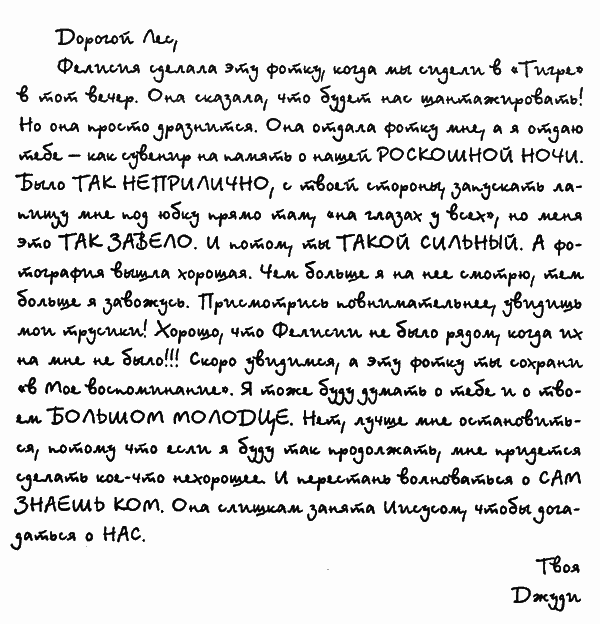 Дорогой Лес,
Фелисия сделала эту фотку, когда мы сидели в «Тигре»
в тот вечер. Она сказала, что будет нас шантажировать!
Но она просто дразнится. Она отдала фотку мне, а я отдаю
тебе — как сувенир на память о нашей РОСКОШНОЙ НОЧИ.
Было ТАК НЕПРИЛИЧНО, с твоей стороны, запускать ла-
пищу мне под юбку прямо там, «на глазах у всех», но меня
это ТАК ЗАВЕЛО. И потом, ты ТАКОЙ СИЛЬНЫЙ. А фо-
тография вышла хорошая. Чем больше я на нее смотрю, тем
больше я завожусь. Присмотрись повнимательнее, увидишь
мои трусики! Хорошо, что Фелисии не было рядом, когда их
на мне не было!!! Скоро увидимся, а эту фотку ты сохрани
«в Мое воспоминание». Я тоже буду думать о тебе и о тво-
ем БОЛЬШОМ МОЛОДЦЕ. Нет, лучше мне остановить-
ся, потому что если я буду так продолжать, мне придется
сделать кое-что нехорошее. И перестань волноваться о САМ
ЗНАЕШЬ КОМ. Она слишкам занята Иисусом, чтобы дога-
даться о НАС.
Твоя
Джуди